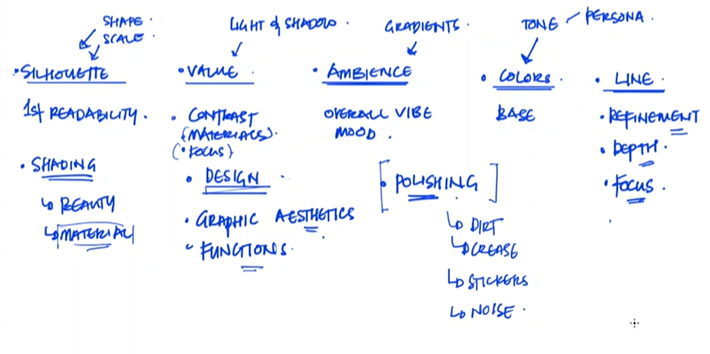 SHAPE.
SCALE.
• SILHOUETTE
1st READABILITY.
• SHADING
↳ REAUTY
↳ MATERIAL
LIGHT & SHADOW.
• VALUE.
• CONTRAST
(MATERIALS).
(• FOCUS)
• DESIGN
• GRAPHIC AESTHETICS
• FUNCTIONS.
GRADIENTS.
• AMBIENCE
OVERALL VIBE
MOOD.
[• POLISHING]
↳ DIRT
↳ CREASE
↳ STICKERS
↳ NOISE.
TONE / PERSONA.
• COLORS.
BASE
• LINE.
• REFINEMENT
• DEPTH.
• FOCUS.